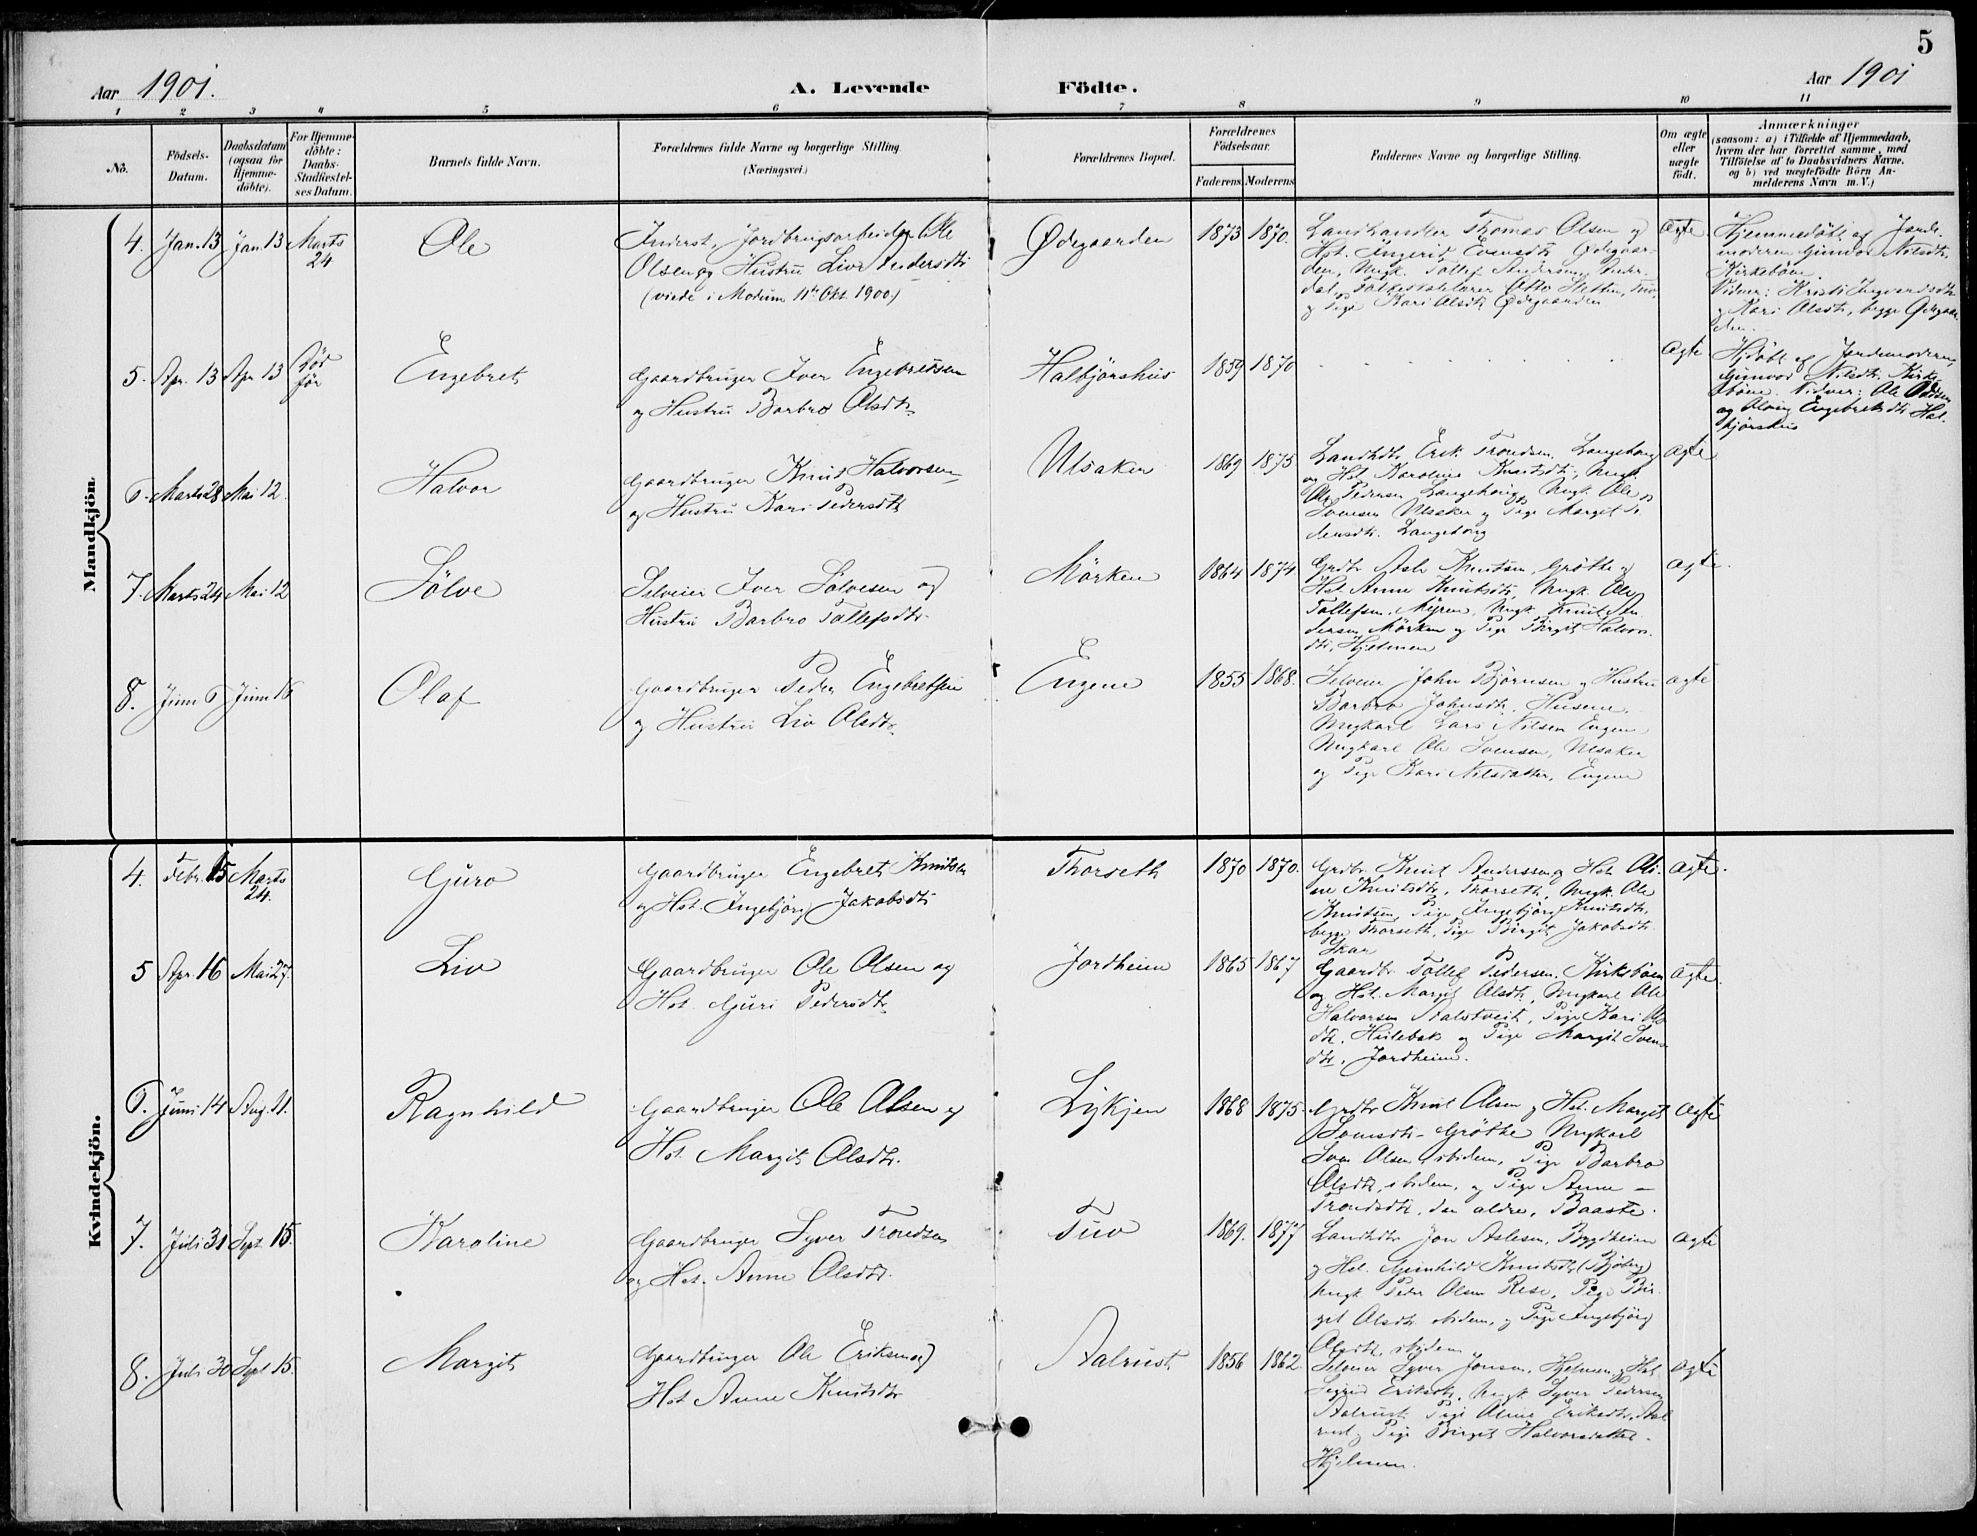 5
Aar 1901. A. Levende Födte. Aar 1901
1 2 3 4 5 6 7 8 9 10 11
No.
Födsels-
Datum.
Daabsdatum
(ogsaa for
Hjemme-
döbte).
For Hjemme-
döbte:
Daabs-
Stadfæstel-
ses Datum.
Barnets fulde Navn.
Forældrenes fulde Navne og borgerlige Stilling.
(Næringsvei.)
Forældrenes Bopæl.
Forældrenes
Födselsaar.
Faderens Moderens
Faddernes Navne og borgerlige Stilling.
Om ægte
eller
uægte
födt.
Anmærkninger
(saasom: a) i Tilfælde af Hjemmedaab,
hvem der har forrettet samme, med
Tilföielse af to Daabsvidners Navne,
og b) ved uægtefödte Börn An-
melderens Navn m.V.)
Mandkjön.
4. Jan. 13 Jan. 13 Marts
24
Ole
Inderst, Jordbrugsarbeider Ole
Olsen og Hustru Liv Andersdtr
(viede i Modum 11te Okt. 1900.)
Ødegaarden
1873 1870.
Landhandler Thomas Olsen og
Hst. Ingerid Evensdtr Ødegaar-
den, Ungk. Tollef Andersen
Otto
og Pige Kari Olsdtr Ødegaarden
Ægte
Hjemmedöbt af Jorde-
moderen Gunvor Nilsdtr.
Kirkeböen.
Vidner: Kristi Ingvardsdtr
og Kari Olsdtr, begge Ödegaar-
den.
5. Apr. 13 Apr 13 Död
för
Engebret
Gaardbruger Iver Engebretsen
og Hustru Barbro Olsdtr
Halbjörshus
1859 1870
Ægte
Hjdöbt af Jordemoderen,
Gunvor Nilsdtr. Kirke-
böen. Vidner: Ole
og Engebretsdtr Hal-
björshus
6. Marts 28 Mai 12.
Halvor
Gaardbruger Knud Halvorsen
og Hustru Kari Pedersdtr
Ulsaker
1869 1875
Landhdlr Erik Trondsen, Langehaug
og Hst. Karoline Knutsdtr, Ungk.
Ole Pedersen Langehaug, Ungk. Ole
Svensen Ulsaker og Pige Margit Pe-
dersdtr. Langehaug
Ægte
7. Marts 24 Mai 12
Sölve
Selveier Iver Sölvesen og
Hustru Barbro Tollefsdtr.
Mörken
1864 1874
Grdbr Asle Knutsen, Gröthe og
Hst. Anne Knutsdtr, Ungk. Ole
Tollefsen, Myren, Ungk. Knut
Mörken og Pige Birgit Halvors-
dtr, Hjelmen
ægte.
8. Juni 6 Juni 16
Olaf
Gaardbruger Peder Engebretsen
og Hustru Liv Olsdtr
Engene
1855 1868.
Selveier John Björnsen og Hustru
Barbro Johnsdtr, Husene.
Ungkarl Lars Nilsen Engene
Ungkarl Ole Svensen, Ulsaker
og Pige Kari Nilsdatter, Engene
ægte
Kvindekjön.
4. Febr. 15 Marts
24.
Guro
Gaardbruger Engebret Knutsen
og Hst. Ingebjörg Jakobsdtr
Thorseth
1870 1870.
Grdbr. Knut Anderssen og Hst. Ali-
ne Knutsdtr, Thorseth, Ungk. Ole
Knutsen, Pige Ingebjörg Knutsdtr,
begge Thorseth, Pige Birgit Jakobsdtr.
Skar
Ægte.
5 Apr. 16 Mai 27.
Liv
Gaardbruger Ole Olsen og
Hst. Guri Pedersdtr
Jordheim
1865 1867
Gaardbr Tollef Pedersen, Kirkeböen
og Hst. Margit Olsdtr, Ungkarl Ole
Halvorsen Pige Kari Ols-
dtr. og Pige Margit Svens-
dtr. Jordheim.
Ægte.
6. Juni 14 Aug. 11.
Ragnhild
Gaardbruger Ole Olsen og
Hst. Margit Olsdtr.
Lykjen
1868 1875.
Grdbr Knut Olsen og Hst. Margit
Svensdtr - Gröthe Ungkarl
Sven Olsen ibidem, Pige Barbro
Olsdtr, ibidem, og Pige Anne
Trondsdtr, den ældre, Baaste.
Ægte
7. Juli 31 Sept 15.
Karoline
Gaardbruger Syver Trondsen
og Hst. Anne Olsdtr.
Tuv
1869. 1877
Landhdlr Jon Aslesen, Bygdheim
og Hst. Gunhild Knutsdtr (Bjöberg)
Ungk Peder Olsen Rese, Pige Bir-
git Olsdtr ibidem, og Pige Ingebjörg
Olsdtr, ibidem
ægte
8. Juli 30 Sept 15.
Margit
Gaardbruger Ole Eriksen og
Hst Anne Knutsdtr
Aalrust
1856 1862
Selveier Syver Jonsen, Hjelmen og Hst
Sigrid Eriksdtr, Ungk Syver Pedersen
Aalrust Pige Eriksdtr, Aal-
rust og Pige Birgit Halvorsdatter.
Hjelmen.
ægte